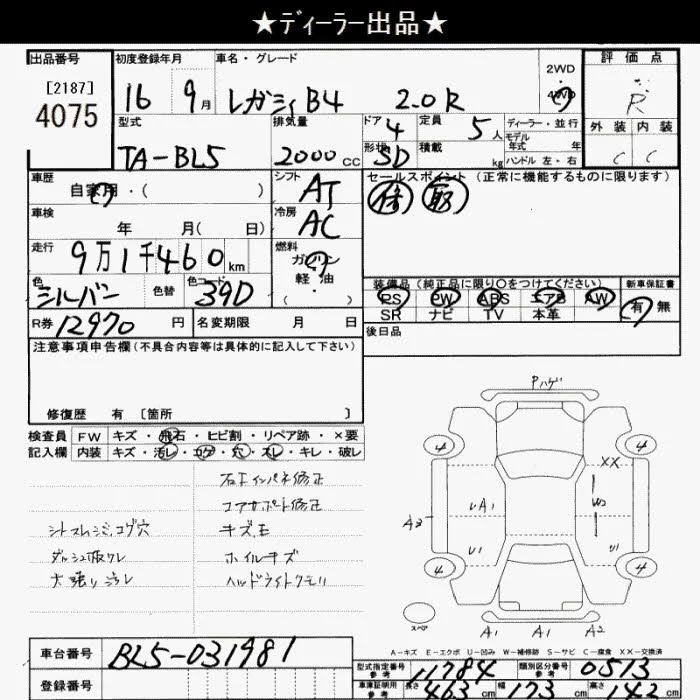 ★ディーラー出品★
出品番号
[2187]
4075
初度登録年月
16 9月
車名・グレード
レガシィB4 2.0R
2WD
・
4WD
評価点
R
外装 内装
C C
型式
TA-BL5
排気量
2000 CC
ドア 4
形状 SD
定員 5人
積載 kg
ディーラー・並行
モデル
年式 年
ハンドル 左・右
車歴
自家用・( )
シフト
AT
セールスポイント (正常に機能するものに限ります)
車検
年 月( 日)
冷房
AC
走行
9万1千460km
燃料
ガソリン
・
軽油
( )
色
シルバー
色替
色コード
39D
装備品(純正品に限り○をつけてください)
PS PW ABS エアB AW
SR ナビ TV 本革
新車保証書
有・無
R券 12970円
名変期限 月 日
後日品
注意事項申告欄(不具合内容等は具体的に記入して下さい)
修復歴 有 〔箇所 〕
検査員
記入欄
FW キズ・飛石・ヒビ割・リペア跡・×要
内装 キズ・汚レ・コゲ・穴・スレ・キレ・破レ
右Fインパネ修正
コアサポート修正
シートスレシミコゲ穴
キズE
ダッシュ板ワレ
ホイルキズ
天張リヨゴレ
ヘッドライトクモリ
Pハゲ
4 4
XX
A1
U2
A2
U1
U1
4 4
スペア
A1 A1 A2
A-キズ E-エクボ U-凹み W-補修跡 S-サビ C-腐食 XX-交換済
車台番号
BL5-031981
登録番号
型式指定番号
参考
11784
類別区分番号
参考
0513
車庫証明用
参考
長さ 463cm 幅 173cm 高さ 142cm